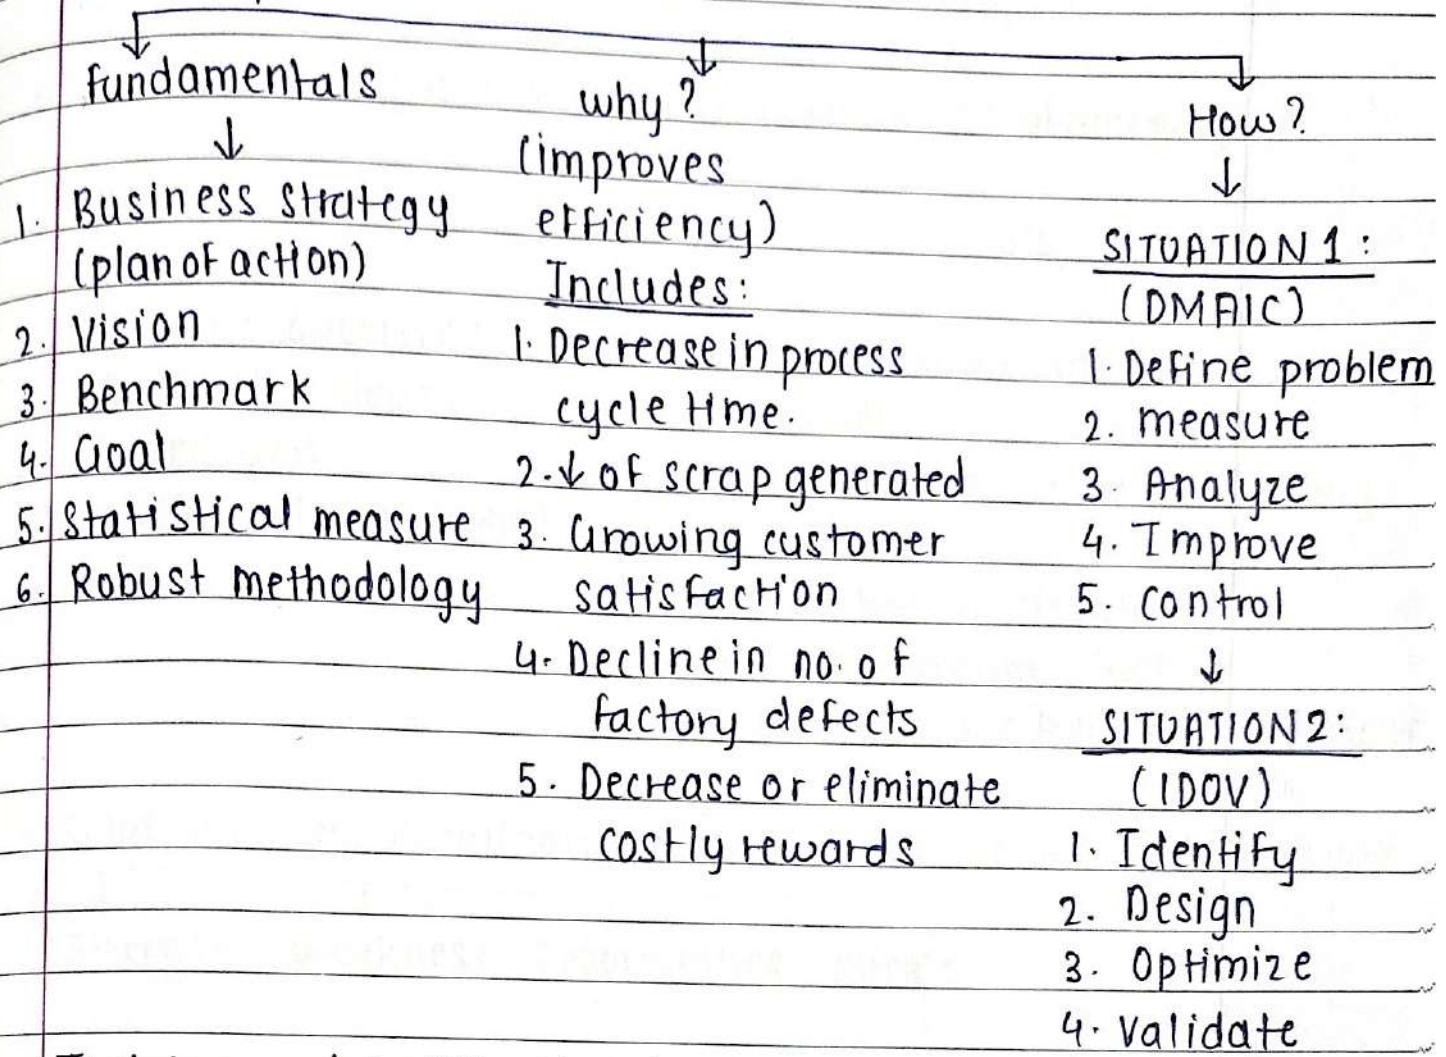 fundamentals
↓
1. Business strategy
(plan of action)
2. Vision
3. Benchmark
4. Goal
5. Statistical measure
6. Robust methodology
why?
(improves
efficiency)
Includes:
1. Decrease in process
cycle time.
2. ↓ of scrap generated
3. Growing customer
satisfaction
4. Decline in no. of
factory defects
5. Decrease or eliminate
costly rewards
How?
↓
SITUATION 1:
(DMAIC)
1. Define problem
2. measure
3. Analyze
4. Improve
5. control
↓
SITUATION 2:
(IDOV)
1. Identify
2. Design
3. Optimize
4. validate